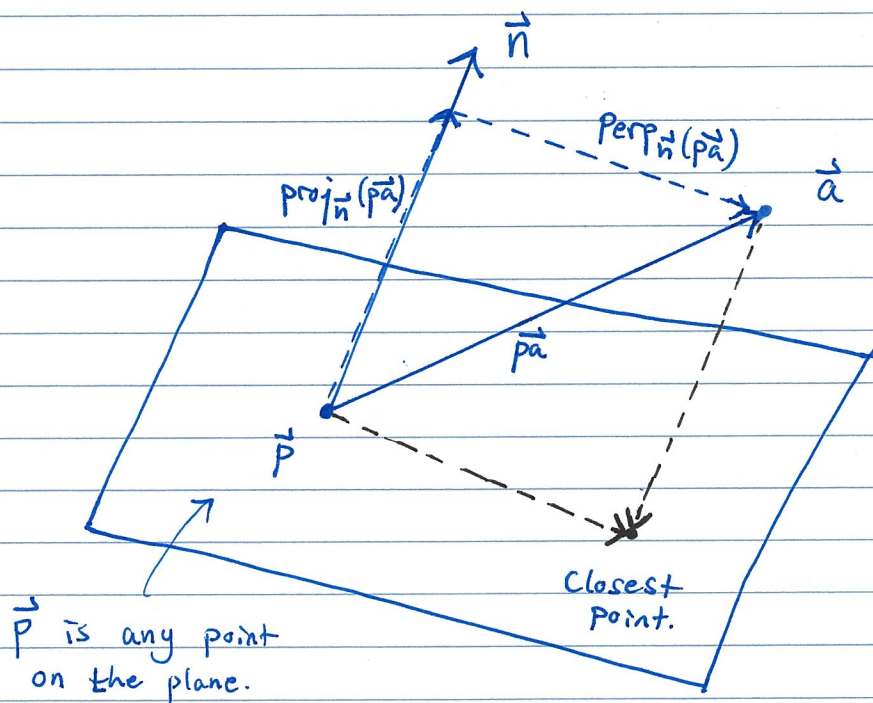 n⃗
perp_n⃗(pa⃗)
proj_n⃗(pa⃗)
a⃗
pa⃗
p⃗
Closest
Point.
p⃗ is any point
on the plane.